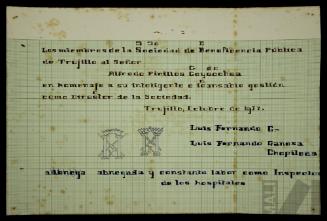 S de S B
Los miembros de la Sociedad de Beneficencia Pública
de Trujillo al Señor
G de
Alfredo Pinillos Goyochea
en homenaje a su inteligente e incansable gestión
como Director de la Sociedad.
Trujillo, Octubre de 19
Luis Fernando G-
Luis Fernando Ganoza
Chopitea
abnega abnegada y constante labor como Inspector
de los hospitales